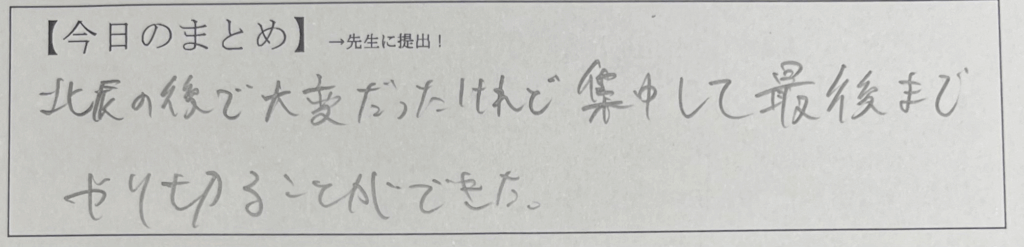 【今日のまとめ】→先生に提出！
北辰の後で大変だったけれど集中して最後まで
やり切ることができた。